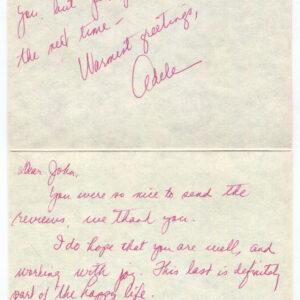 you, but
the next time –
Warmest greetings,
Adele
Dear John,
You were so nice to send the
reviews. We thank you.
I do hope that you are well, and
working with joy. This last is definitely
part of the happy life.